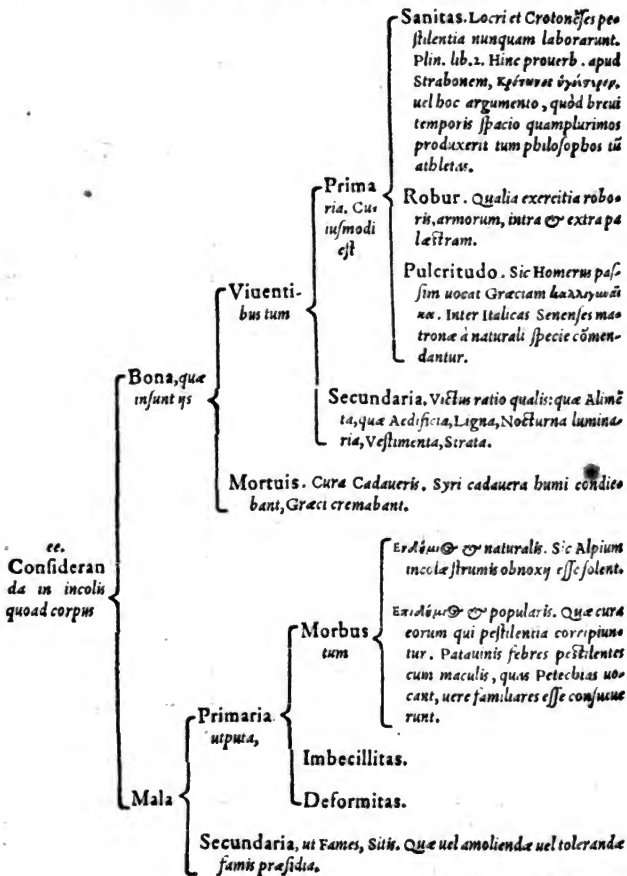 ee.
Consideran
da in incolis
quoad corpus
Bona, quæ
insunt ijs
Viuenti-
bus tum
Prima
ria. Cu-
iusmodi
est
Sanitas. Locri et Crotonẽses pe-
stilentia nunquam laborarunt.
Plin. lib.2. Hinc prouerb. apud
Strabonem,
uel hoc argumento, quòd breui
temporis spacio quamplurimos
produxerit tum philosophos tũ
athletas.
Robur. Qualia exercitia robo-
ris, armorum, intra & extra pa
læstram.
Pulcritudo. Sic Homerus pas-
sim uocat Græciam
Inter Italicas Senenses ma-
tronæ à naturali specie cõmen-
dantur.
Secundaria. Victus ratio qualis: quæ Alimẽ
ta, quæ Aedificia, Ligna, Nocturna lumina-
ria, Vestimenta, Strata.
Mortuis. Cura Cadaueris. Syri cadauera humi condie-
bant, Græci cremabant.
Mala
Primaria
utputa,
Morbus
tum
& naturalis. Sic Alpium
incolæ strumis obnoxij esse solent.
& popularis. Quæ cura
eorum qui pestilentia corripiun-
tur. Patauinis febres pestilentes
cum maculis, quas Petechias uo-
cant, uere familiares esse consueue
runt.
Imbecillitas.
Deformitas.
Secundaria, ut Fames, Sitis. Quæ uel amoliendæ uel tolerandæ
famis præsidia.